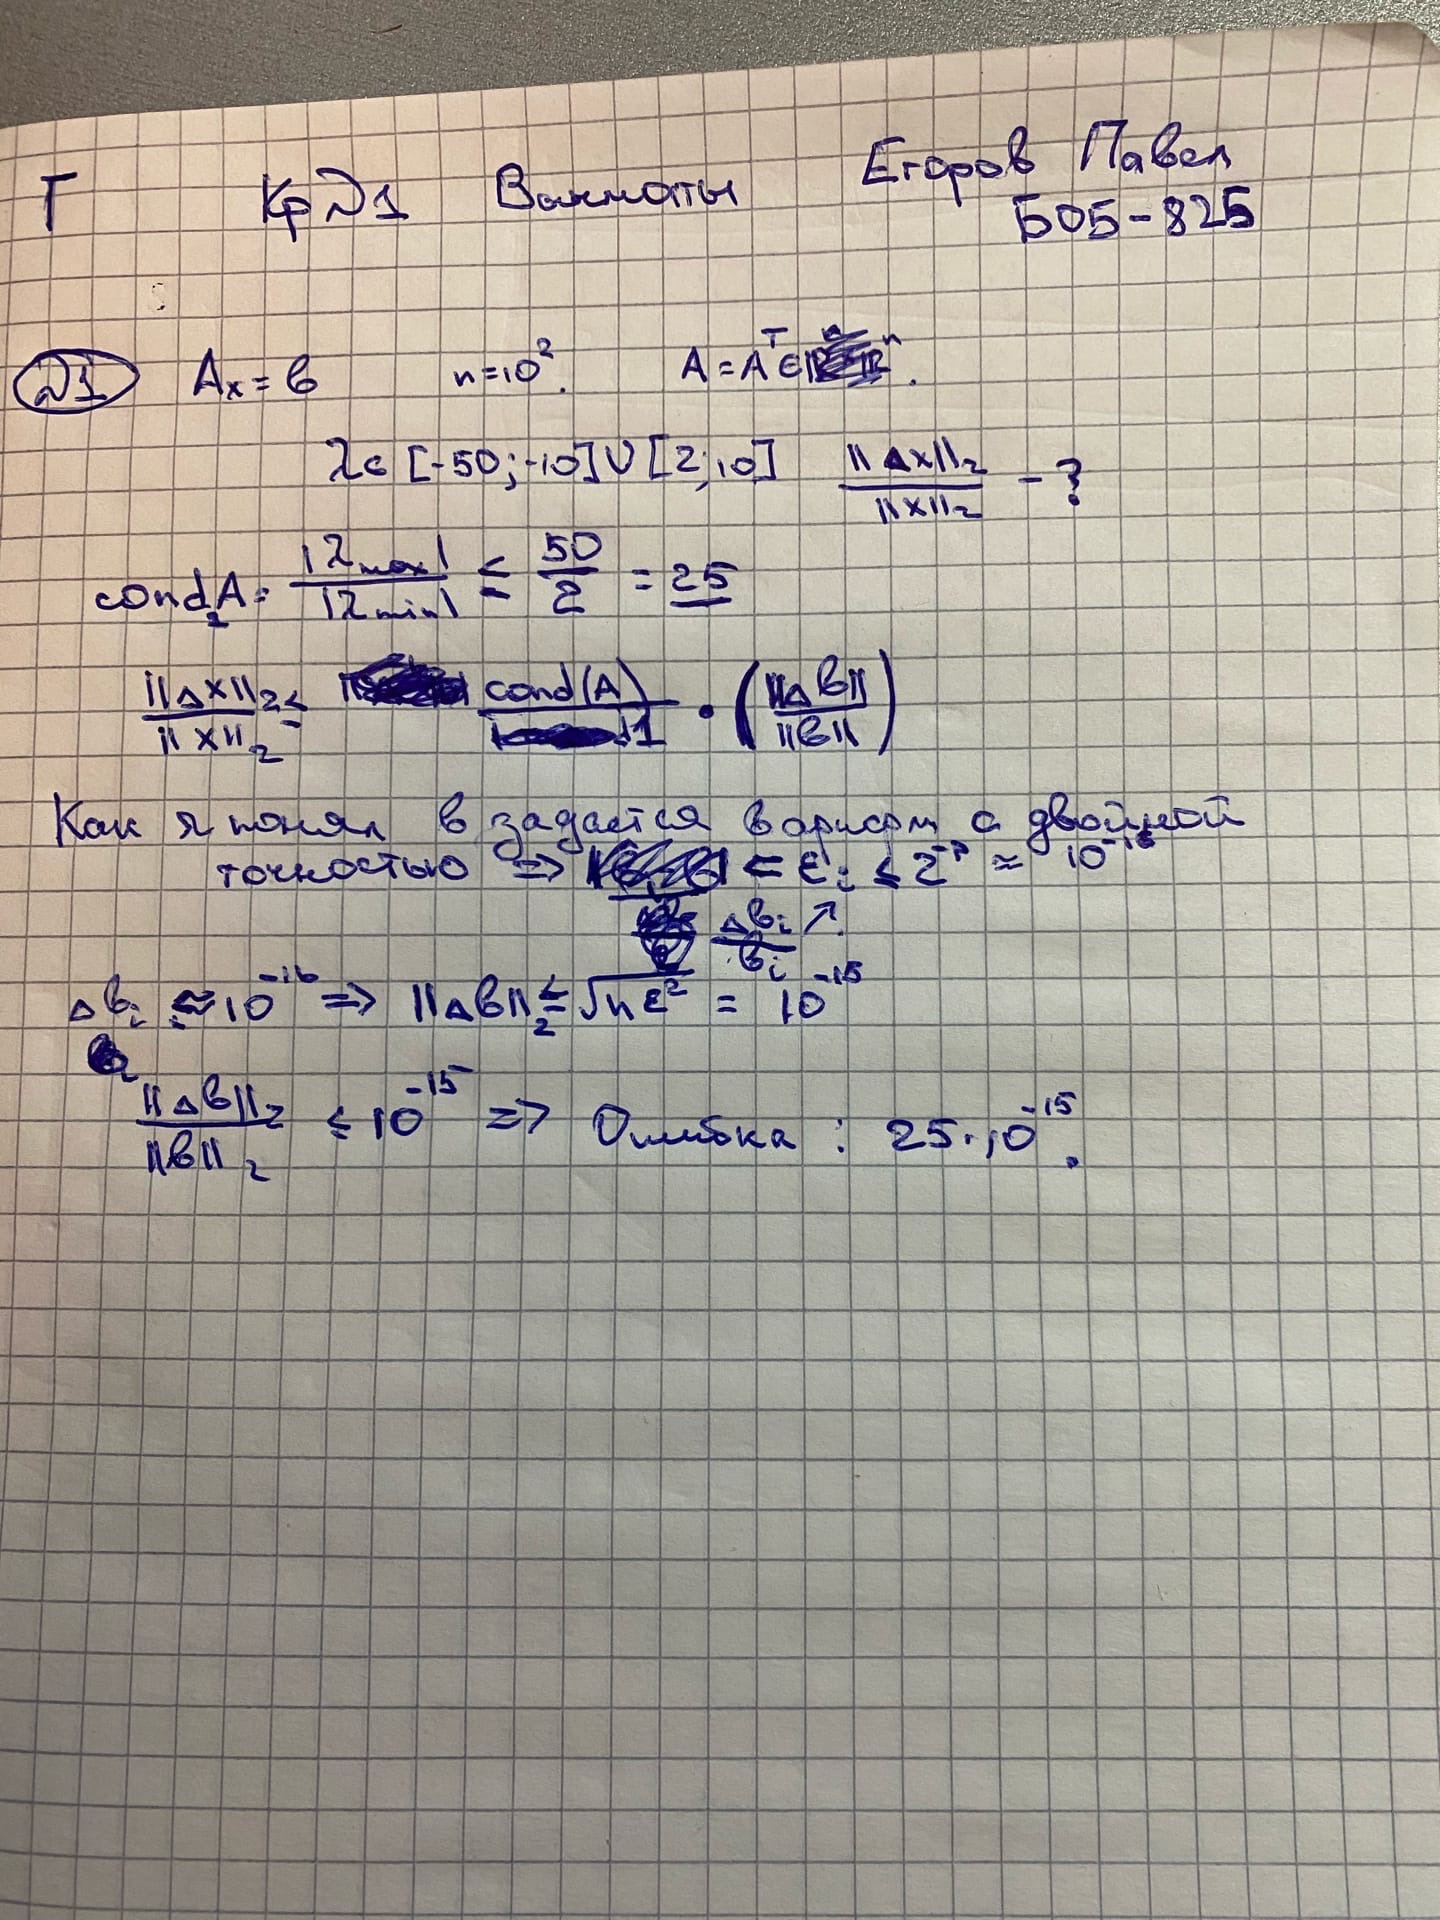 Г Кр №1 Вычматы Егоров Павел
Б05-825
№1 Ax = b n=10². A = Aᵀ ∈ ℝⁿ.
λ ∈ [-50; -10] ∪ [2; 10] ||Δx||₂ / ||x||₂ - ?
cond₂A = |λmax| / |λmin| ≤ 50/2 = 25
||Δx||₂ / ||x||₂ ≤ cond(A) / 1 • (||Δb|| / ||b||)
Как я понял b задаётся в арифм с двойной
точностью => ≤ εᵢ ≤ 2⁻ᵖ ≈ 10⁻¹⁶
Δbᵢ / bᵢ ↗
Δbᵢ ≲ 10⁻¹⁶ => ||Δb||₂ ≤ √(nε²) = 10⁻¹⁵
||Δb||₂ / ||b||₂ ≤ 10⁻¹⁵ => Ошибка : 25·10⁻¹⁵.